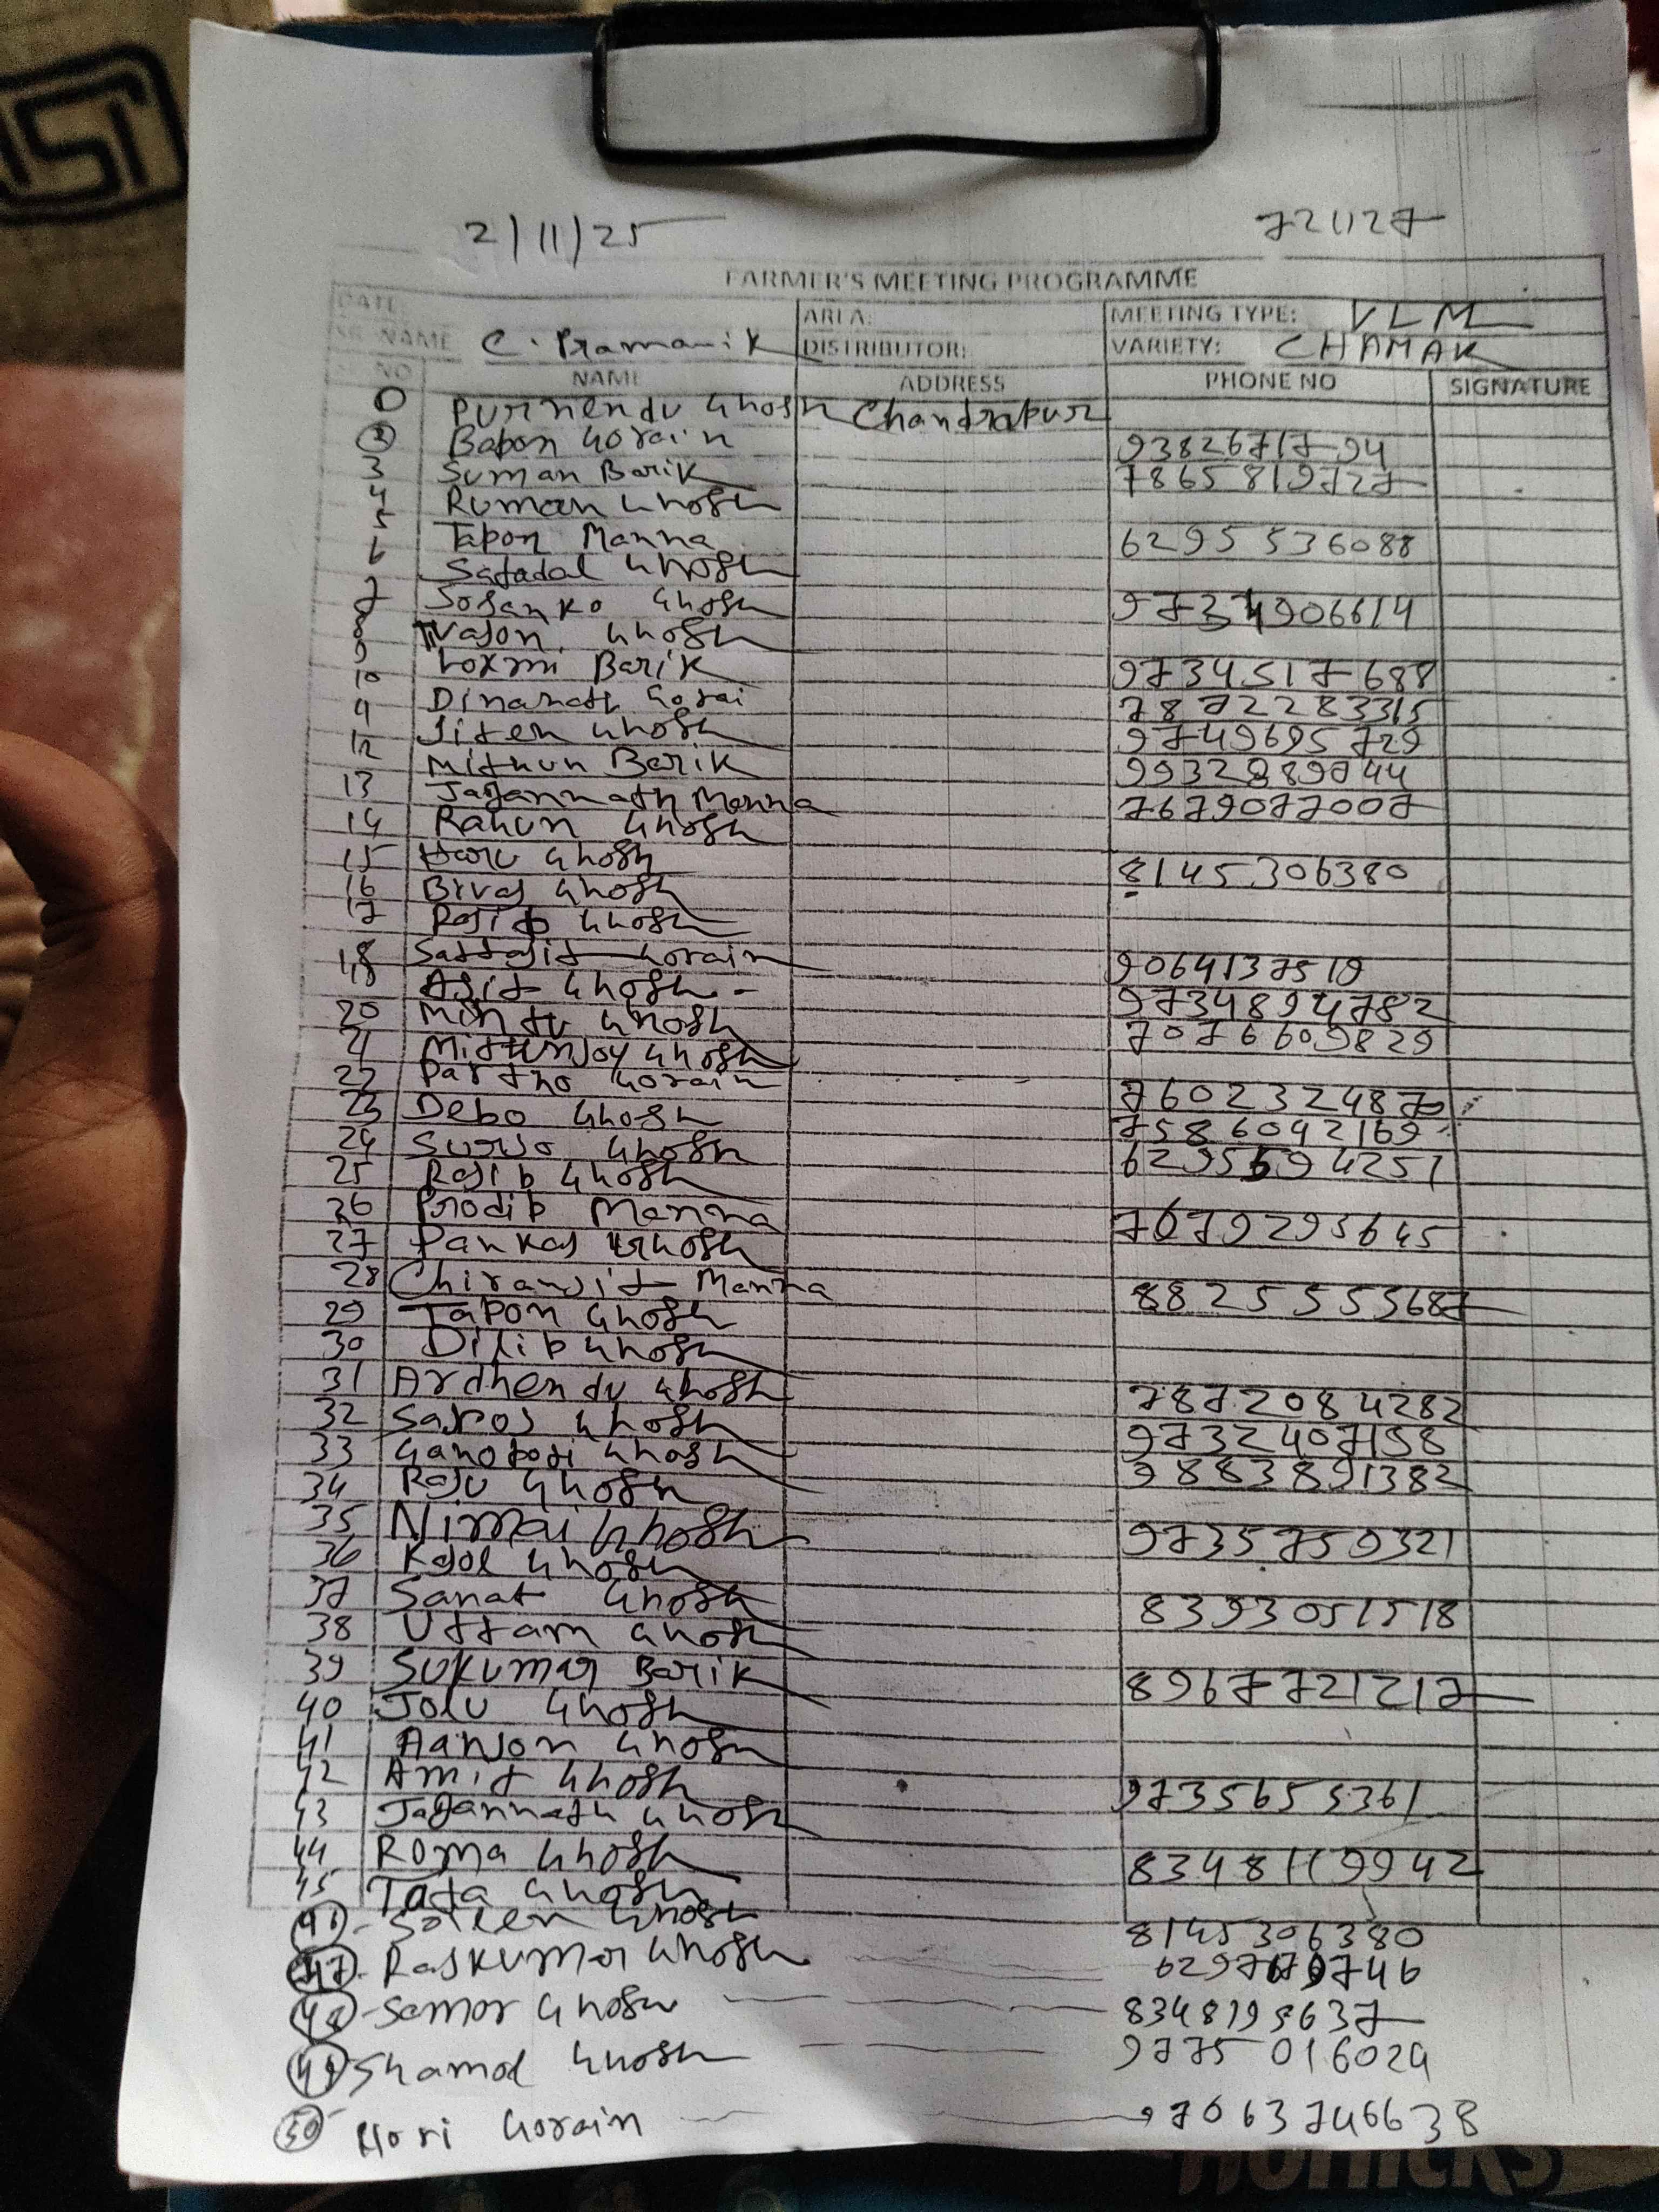 ISI
2/11/25 721127
FARMER'S MEETING PROGRAMME
DATE: AREA: MEETING TYPE: VLM
SR. NAME C. Pramanik DISTRIBUTOR: VARIETY: CHAMAK
SL. NO NAME ADDRESS PHONE NO SIGNATURE
1 Purnendu Ghosh Chandrapur
2 Bapon Gorain 9382671794
3 Suman Barik 7865819727
4 Ruman Ghosh
5 Tapon Manna 6295536088
6 Satadal Ghosh
7 Sosanko Ghosh 9734906614
8 Ghosh
9 Loxmi Barik 9734517688
10 Dinanath Gorai 7872283315
11 Jiten Ghosh 9749695729
12 Mithun Barik
13 Jagannath Manna 7679077007
14 Rahun Ghosh
15 Haru Ghosh 8145306380
16 Bivas Ghosh
17 Ghosh
18 Sattajit Gorain
19 Ajit Ghosh - 9734894782
20 Mintu Ghosh 7076609829
21 Mittunjoy Ghosh
22 Partho Gorain 7602324870
23 Debo Ghosh 7586042169
24 Surjo Ghosh
25 Rajib Ghosh
26 Prodip Manna 7679295645
27 Pankaj Ghosh
28 Chiranjit Manna 8825555687
29 Tapon Ghosh
30 Dilip Ghosh
31 Ardhendu Ghosh 7872084282
32 Ghosh 9732407158
33 Ganopoti Ghosh 9883891382
34 Raju Ghosh
35 Nimai Ghosh 9735750321
36 Kajol Ghosh
37 Sanat Ghosh 8393051518
38 Uttam Ghosh
39 Sukumar Barik 8967721217
40 Jolu Ghosh
41 Ghosh
42 Amit Ghosh 9735655361
43 Jagannath Ghosh
44 Roma Ghosh 8348119942
45 Tata Ghosh
46 Ghosh 8145306380
47 Rajkumar Ghosh
48 Samor Ghosh 8348195637
49 Shamol Ghosh 9775016029
50 Hori Gorain 97063746638
Horlicks